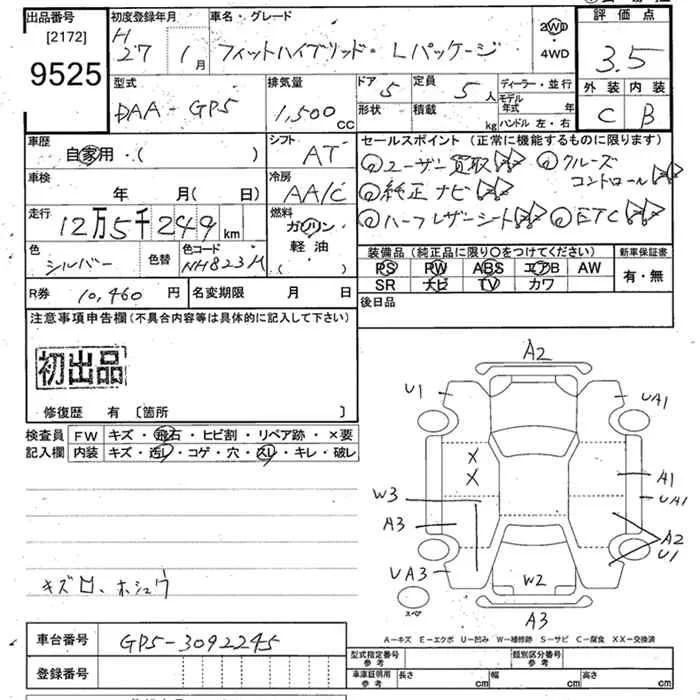 出品番号
[2172]
9525
初度登録年月
H
27 1月
車名・グレード
フィットハイブリッド・Lパッケージ
2WD
4WD
評価点
3.5
外装 内装
C B
型式
DAA-GP5
排気量
1,500cc
ドア 5
形状
定員 5人
積載 kg
ディーラー・並行
モデル年式 年
ハンドル 左・右
車歴
自家用・( )
シフト
AT
車検
年 月( 日)
冷房
AA/C
走行
12万5千249km
燃料
ガソリン
軽油
( )
色
シルバー
色替
色コード
NH823M
R券 10,460円
名変期限 月 日
セールスポイント(正常に機能するものに限ります)
ユーザー買取
クルーズコントロール
純正ナビ
ハーフレザーシート
ETC
装備品(純正品に限り○をつけてください)
PS PW ABS エアB AW
SR ナビ TV カワ
新車保証書
有・無
後日品
注意事項申告欄(不具合内容等は具体的に記入して下さい)
初出品
修復歴 有〔箇所 〕
検査員
記入欄
FW キズ・飛石・ヒビ割・リペア跡・×要
内装 キズ・汚レ・コゲ・穴・スレ・キレ・破レ
キズ口、ホシュウ
A2
U1
UA1
X
X
A1
UA1
W3
A3
A2
U1
UA3
W2
A3
スペア
A-キズ E-エクボ U-凹み W-補修跡 S-サビ C-腐食 XX-交換済
車台番号 GP5-3092245
登録番号
型式指定番号
参考
類別区分番号
参考
車庫証明用
参考
長さ cm
幅 cm
高さ cm